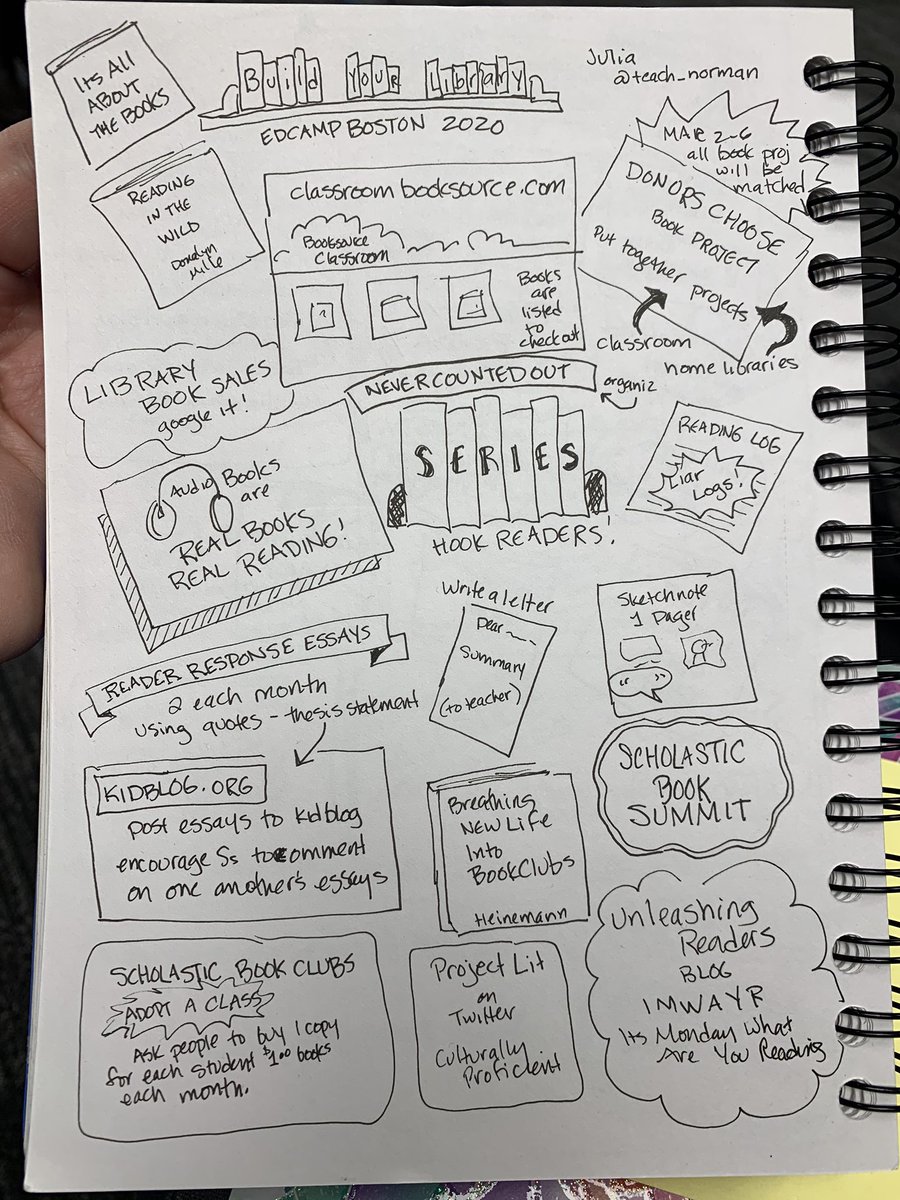 Its All
ABOUT
THE BOOKS
Build Your Library
EDCAMP BOSTON 2020
Julia
@teach_norman
READING
IN THE
WILD
Donalyn
Mille
classroom booksource.com
Booksource
Classroom
Books
are
listed
to
checkout
MAR 2-6
all book proj
will be
matched
DONORS CHOOSE
BOOK PROJECT
Put together projects
classroom
home libraries
LIBRARY
BOOK SALES
google it!
NEVER COUNTED OUT
organiz
SERIES
HOOK READERS!
READING LOG
Liar
Logs!
Audio Books
are
REAL BOOKS
REAL READING!
Write a letter
Dear
Summary
(to teacher)
Sketchnote
1 Pager
" "
READER RESPONSE ESSAYS
2 each month
using quotes - thesis statement
KIDBLOG.ORG
post essays to kidblog
encourage Ss to comment
on one another's essays
Breathing
NEW Life
Into
BOOK Clubs
Heinemann
SCHOLASTIC
BOOK
SUMMIT
SCHOLASTIC BOOK CLUBS
ADOPT A CLASS
ASK people to buy 1 copy
for each student $1.00 books
each month.
Project Lit
on
Twitter
Culturally
Proficient
Unleashing
Readers
BLOG
IMWAYR
Its Monday What
Are You Reading